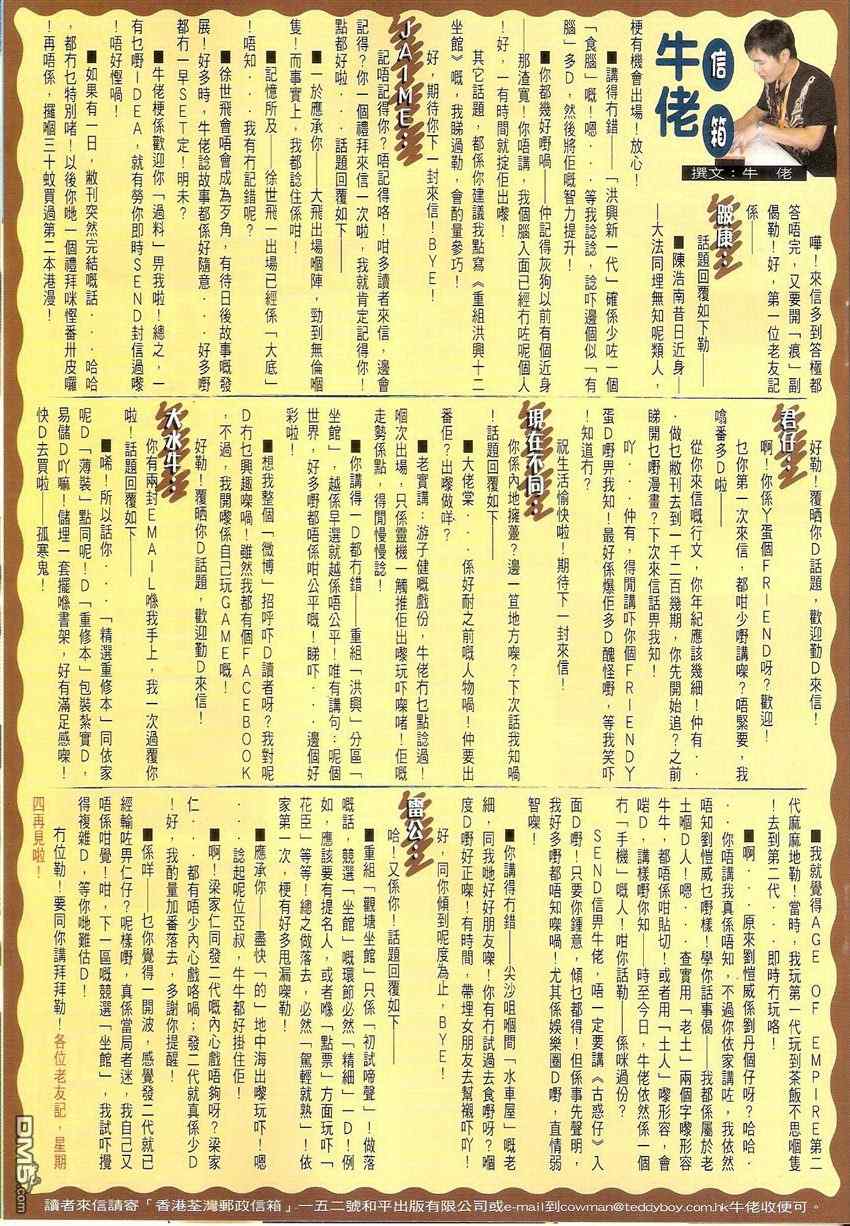 牛佬
信箱
撰文：牛 佬
嘩！來信多到答極都
答唔完，又要開「痕」副
偈勒！好，第一位老友記
係——
跛康：
話題回覆如下勒——
■陳浩南昔日近身—
—大法同埋無知呢類人，
梗有機會出場！放心！
■講得冇錯——「洪興新一代」確係少咗一個
「食腦」嘅！嗯．．．等我諗諗，諗吓邊個似「有
腦」多D，然後將佢嘅智力提升！
■你都幾好嘢喎——仲記得灰狗以前有個近身
那渣寬！你唔講，我個腦入面已經冇咗呢個人
！好，一有時間就掟佢出嚟！
其它話題，都係你建議我點寫《重組洪興十二
坐館》嘅，我睇過勒，會酌量參巧！
好，期待你下一封來信！BYE！
JAIME：
記唔記得你？唔記得咯！咁多讀者來信，邊會
記得？你一個禮拜來信一次啦，我就肯定記得你！
點都好啦．．．話題回覆如下——
■一於應承你——大飛出場嗰陣，勁到無倫嗰
隻！而事實上，我都諗住係咁！
■記憶所及——徐世飛一出場已經係「大底」
！唔知．．．我有冇記錯呢？
■徐世飛會唔會成為歹角，有待日後故事嘅發
展！好多時，牛佬諗故事都係好隨意．．．好多嘢
都冇一早SET定！明未？
■牛佬梗係歡迎你「過料」畀我啦！總之，一
有乜嘢IDEA，就有勞你即時SEND封信過嚟
！唔好慳喎！
■如果有一日，敝刊突然完結嘅話．．．哈哈
，都冇乜特別啫！以後你哋一個禮拜咪慳番卅皮囉
！再唔係，攞嗰三十蚊買過第二本港漫！
好勒！覆晒你D話題，歡迎勤D來信！
君仔：
啊！你係丫蛋個FRIEND呀？歡迎！
乜你第一次來信，都咁少嘢講㗎？唔緊要，我
噏番多D啦！
從你來信嘅行文，你年紀應該幾細！仲有．．
．做乜敝刊去到一千二百幾期，你先開始追？之前
睇開乜嘢漫畫？下次來信話畀我知！
吖．．．仲有，得閒講吓你個FRIEND丫
蛋D嘢畀我知！最好係爆佢多D醜怪嘢，等我笑吓
！知道冇？
祝生活愉快啦！期待下一封來信！
現在不同：
你係內地擁躉？邊一笪地方㗎？下次話我知喎
！話題回覆如下——
■大佬棠．．．係好耐之前嘅人物喎！仲要出
番佢？出嚟做咩？
■老實講：游子健嘅戲份，牛佬冇乜點諗過！
嗰次出場，只係靈機一觸推佢出嚟玩吓㗎啫！佢嘅
走勢係點，得閒慢慢諗！
■你講得一D都冇錯——重組「洪興」分區「
坐館」，越係早選就越係唔公平！唯有講句：呢個
世界，好多嘢都唔係咁公平嘅！睇吓．．．邊個好
彩啦！
■想我整個「微博」招呼吓D讀者呀？我對呢
D冇乜興趣㗎喎！雖然我都有個FACEBOOK
，不過，我開嚟係自己玩GAME嘅！
好勒！覆晒你D話題，歡迎勤D來信！
大水牛：
你有兩封EMAIL喺我手上，我一次過覆你
啦！話題回覆如下——
■唏！所以話你．．．「精選重修本」同依家
呢D「薄裝」點同呢！D「重修本」包裝紮實D，
易儲D吖嘛！儲埋一套擺喺書架，好有滿足感㗎！
快D去買啦——孤寒鬼！
■我就覺得AGE OF EMPIRE第二
代麻麻地勒！當時，我玩第一代玩到茶飯不思嗰隻
！去到第二代．．．即時冇玩咯！
■啊．．．原來劉愷威係劉丹個仔呀？哈哈．
．．你唔講我真係唔知，不過你依家講咗，我依然
唔知劉愷威乜嘢樣！學你話事偈——我都係屬於老
土嗰D人！嗯．．．查實用「老土」兩個字嚟形容
牛牛，都唔係咁貼切！或者用「土人」嚟形容，會
啱D，講樣嘢你知——時至今日，牛佬依然係一個
冇「手機」嘅人！咁你話勒——係咪過份？
SEND信畀牛佬，唔一定要講《古惑仔》入
面D嘢！只要你鍾意，傾乜都得！但係事先聲明，
我好多嘢都唔知㗎喎！尤其係娛樂圈D嘢，直情弱
智㗎！
■你講得冇錯——尖沙咀嗰間「水車屋」嘅老
細，同我哋好好朋友㗎！你有冇試過去食嘢呀？嗰
度D嘢好正㗎！有時間，帶埋女朋友去幫襯吓吖！
好，同你傾到呢度為止，BYE！
雷公：
哈！又係你！話題回覆如下——
■重組「觀塘坐館」只係「初試啼聲」！做落
嘅話，競選「坐館」嘅環節必然「精細」一D！例
如，應該要有提名人，或者喺「點票」方面玩吓「
花臣」等等！總之做落去，必然「駕輕就熟」！依
家第一次，梗有好多甩漏㗎勒！
■應承你——盡快「的」地中海出嚟玩吓！嗯
．．．諗起呢位亞叔，牛牛都好掛住佢！
■啊！梁家仁同發二代嘅內心戲唔夠呀？梁家
仁．．．都有唔少內心戲咯喎；發二代就真係少D
！好，我酌量加番落去，多謝你提醒！
■係咩——乜你覺得一開波，感覺發二代就已
經輸咗畀仁仔？呢樣嘢，真係當局者迷，我自己又
唔係咁覺！咁，下一區嘅競選「坐館」，我試吓攪
得複雜D，等你哋難估D！
冇位勒！要同你講拜拜勒！各位老友記，星期
四再見啦！
讀者來信請寄「香港荃灣郵政信箱」一五二號和平出版有限公司或e-mail到cowman@teddyboy.com.hk牛佬收便可。
DM5.com